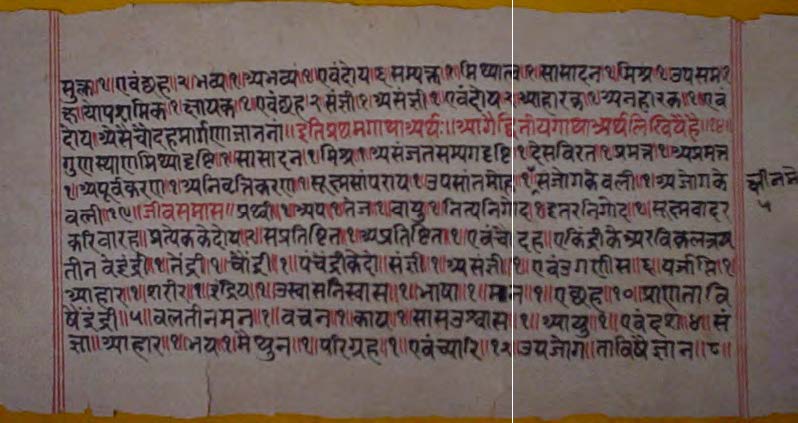 मुक्त॥१॥एवंछह॥२॥भव्य॥१॥अभव्य॥१॥एवंदोय॥६॥सम्यक्त॥१॥मिथ्यात्व॥१॥सासादन॥१॥मिश्र॥१॥उपसम॥१॥
क्षायोपशमिक॥१॥क्षायक॥१॥एवंछह॥२॥संज्ञी॥१॥असंज्ञी॥१॥एवंदोय॥२॥आहारक॥१॥अनहारक॥१॥एवं
दोय॥असैचौदहमार्गणाजाननां॥इतिप्रथमगाथाअर्थः॥आगैद्वितीयगाथाअर्थलिखियैहै॥१४॥
गुणस्थाणमिथ्यादृष्टि॥१॥सासादन॥१॥मिश्र॥१॥असंजतसम्यगदृष्टि॥१॥देसविरत॥१॥प्रमत्त॥१॥अप्रमत्त
॥१॥अपूर्वकरण॥१॥अनिवर्त्तिकरण॥१॥सूक्ष्मसांपराय॥१॥उपसांतमोह॥१॥सजोगकेवली॥१॥अजोगके
वली॥१९॥जीवसमास॥प्रथ्वी॥१॥अप॥१॥तेज॥१॥वायु॥१॥नित्यनिगोद॥१॥इतरनिगोद॥१॥सूक्ष्मवादर
करिवारह॥प्रत्येककेदोय॥२॥सप्रतिष्टित॥१॥अप्रतिष्टित॥१॥एवंचौदह॥एकिंद्रीकेअरविकलत्रय
तीनवेइंद्री॥१॥तेंद्री॥१॥चौंद्री॥१॥पंचेंद्रीकेदो॥संज्ञी॥१॥असंज्ञी॥१॥एवंउगणीस॥६॥पर्जाप्ति॥१॥
आहार॥१॥शरीर॥१॥इंद्रिय॥१॥उस्वासनिस्वास॥१॥भाषा॥१॥मन॥१॥एछह॥१०॥प्राणतावि
षैइंद्री॥५॥वलतीनमन॥१॥वचन॥१॥काय॥१॥सासउश्वास॥१॥आयु॥१॥एवंदश॥४॥सं
ज्ञा॥आहार॥१॥भय॥१॥मैथुन॥१॥परिग्रह॥१॥एवंच्यारि॥१२॥उपजोग॥ताविषैज्ञान॥८॥